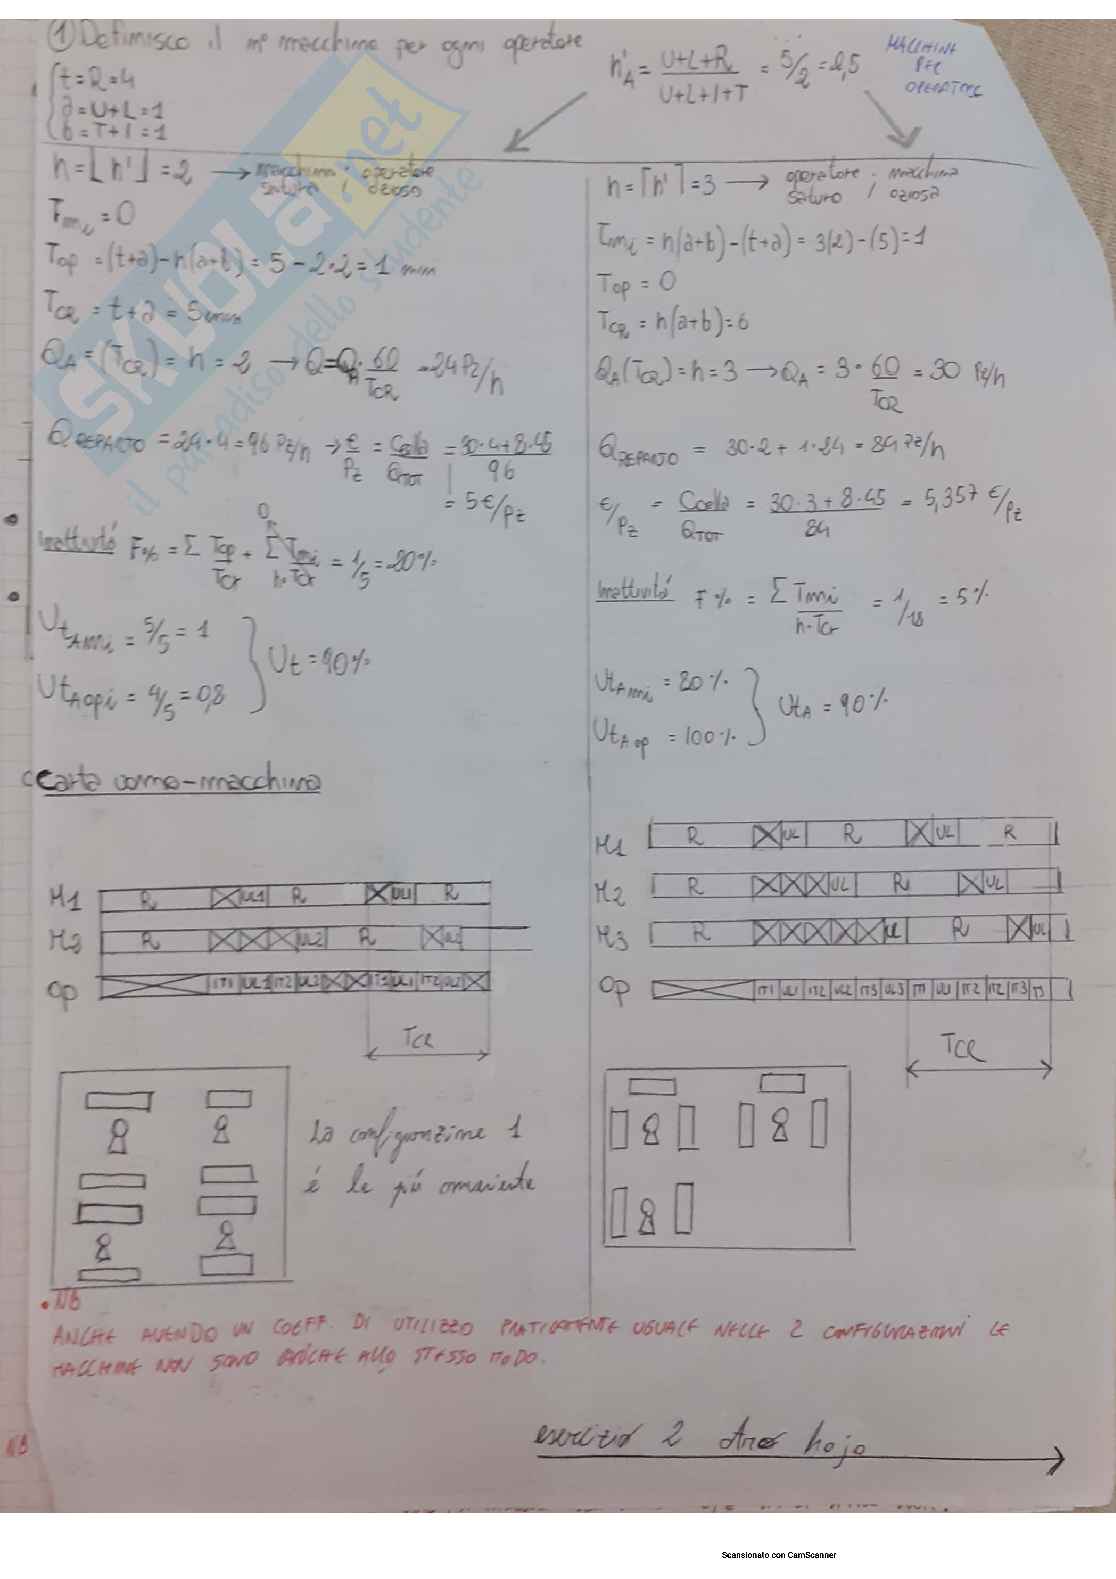 ① Definisco il n° macchine per ogni operatore
t = R = 4
a = U+L = 1
b = T+I = 1
n'A = U+L+R / U+L+I+T = 5/2 = 2,5
MACCHINE PER OPERATORE
n = ⌊n'⌋ = 2 → macchina satura / operatore ozioso
Tmi = 0
Top = (t+a) - n(a+b) = 5 - 2·2 = 1 min
TCR = t+a = 5 min
QA = (TCR) = n = 2 → Q = QA · 60/TCR = 24 Pz/h
QREPARTO = 24·4 = 96 Pz/h → €/Pz = Ccella/QTOT = 30·4+8·45 / 96
= 5 €/Pz
Inattività F% = Σ Top/TCr + Σ Tmi/n·TCr = 1/5 = 20%
0
UtAmi = 5/5 = 1
UtAopi = 4/5 = 0,8
Ut = 90%
n = ⌈n'⌉ = 3 → operatore saturo / macchina oziosa
Tmi = n(a+b) - (t+a) = 3(2) - (5) = 1
Top = 0
TCR = n(a+b) = 6
QA(TCR) = n = 3 → QA = 3 · 60/TCR = 30 Pz/h
QREPARTO = 30·2 + 1·24 = 84 Pz/h
€/Pz = Ccella/QTOT = 30·3+8·45 / 84 = 5,357 €/Pz
Inattività F% = Σ Tmi / n·TCr = 1/18 = 5%
UtAmi = 80%
UtAop = 100%
UtA = 90%
Carta uomo-macchina
M1 R UL1 R UL1 R
M2 R UL2 R UL2
Op IT1 UL1 IT2 UL2 IT1 UL1 IT2 UL2
TCR
M1 R UL R UL R
M2 R UL R UL
M3 R UL R UL
Op IT1 UL1 IT2 UL2 IT3 UL3 IT1 UL1 IT2 UL2 IT3
TCR
La configurazione 1
é la più conveniente
• NB
ANCHE AVENDO UN COEFF. DI UTILIZZO PRATICAMENTE UGUALE NELLE 2 CONFIGURAZIONI LE
MACCHINE NON SONO CARICHE ALLO STESSO MODO.
NB
esercizio 2
SKUOLA.net
il paradiso dello studente
Scansionato con CamScanner